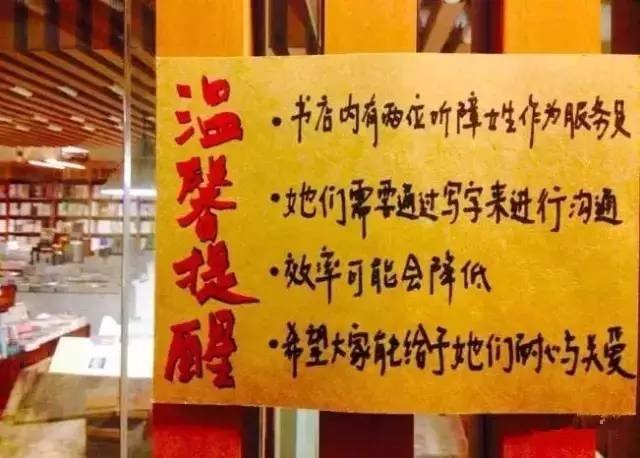 温馨提醒
·书店内有两位听障女生作为服务员
·她们需要通过写字来进行沟通
·效率可能会降低
·希望大家能给予她们耐心与关爱